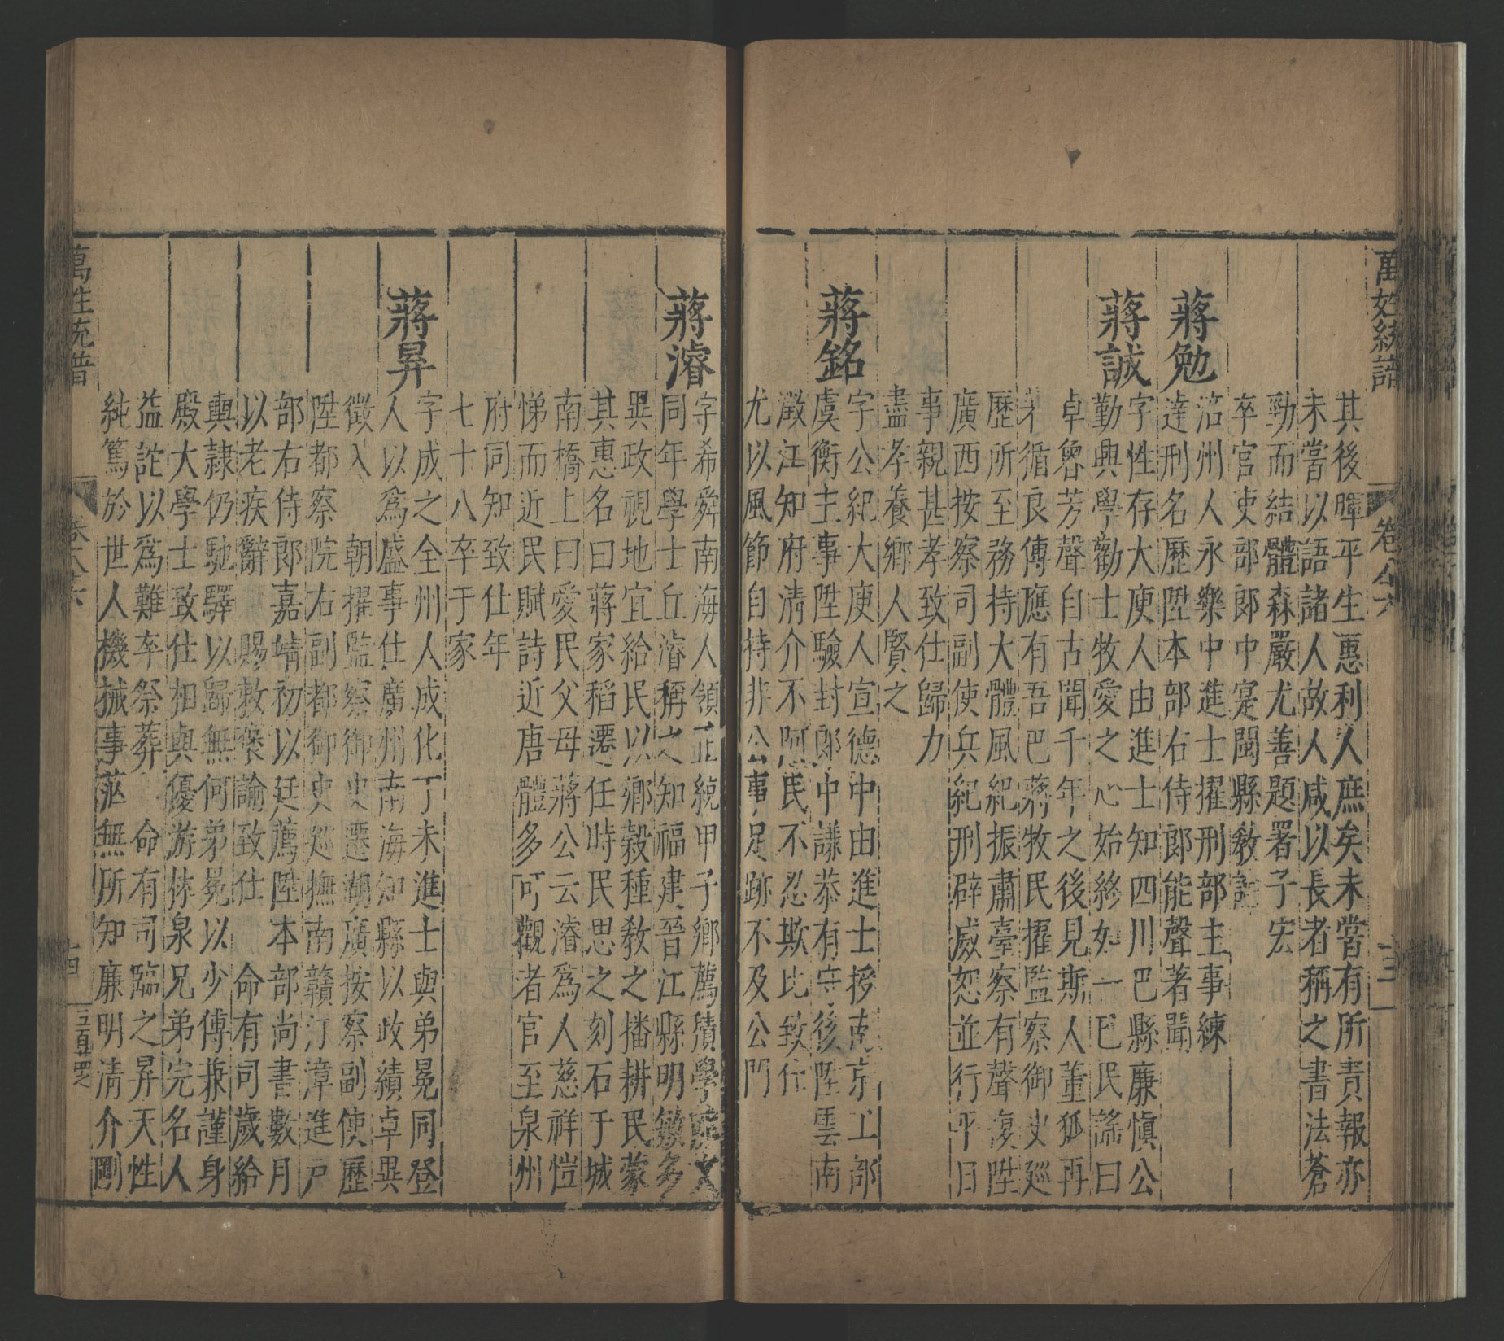 萬姓統譜 卷八十六 十三
其後暉平生惠利人庶矣未嘗有所責報亦
未嘗以語諸人故人咸以長者稱之書法蒼
勁而結體森嚴尤善題署子宏
卒官吏部郎中寔閩縣教諭
蔣勉
涪州人永樂中進士擢刑部主事練
達刑名歷陞本部右侍郎能聲著聞
蔣誠
字性存大庾人由進士知四川巴縣廉慎公
勤興學勸士牧愛之心始終如一巴民謠曰
卓魯芳聲自古聞千年之後見斯人董狐再
筆循良傳應有吾巴蔣牧民擢監察御史巡
歷所至務持大體風紀振肅臺察有聲復陞
廣西按察司副使兵紀刑辟威恕並行平日
事親甚孝致仕歸力
盡孝養鄉人賢之
蔣銘
字公紀大庾人宣德中由進士授南京工部
虞衡主事陞驗封郎中謙恭有守後陞雲南
澂江知府清介不阿民不忍欺比致仕
尤以風節自持非公事足跡不及公門
蔣濬
字希舜南海人領正統甲子鄉薦績學
同年學士丘濬稱之知福建晉江縣明敏多
異政視地宜給民以鄉穀種教之播耕民蒙
其惠名曰蔣家稻遷任時民思之刻石于城
南橋上曰愛民父母蔣公云濬為人慈祥愷
悌而近民賦詩近唐體多可觀者官至泉州
府同知致仕年
七十八卒于家
蔣昇
字成之全州人成化丁未進士與弟冕同登
人以為盛事仕廣州南海知縣以政績卓異
徵入 朝擢監察御史遷湖廣按察副使歷
陞都察院右副都御史巡撫南贛汀漳進戶
部右侍郎嘉靖初以廷薦陞本部尚書數月
以老疾辭 賜敕褒諭致仕 命有司歲給
輿隸仍馳驛以歸無何弟冕以少傅兼謹身
殿大學士致仕相與優游林泉兄弟完名人
益詫以為難卒祭葬 命有司臨之昇天性
純篤於世人機械事茫無所知廉明清介剛
萬姓統譜 卷八十六 十四